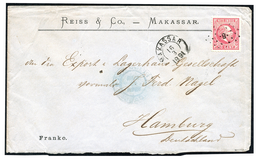 REISS & CO. – MAKASSAR.
MAKASSAR
An die Export & Lagerhaus Gesellschaft
vormals J. Ferd. Nagel
Hamburg
Franko.
Deutschland